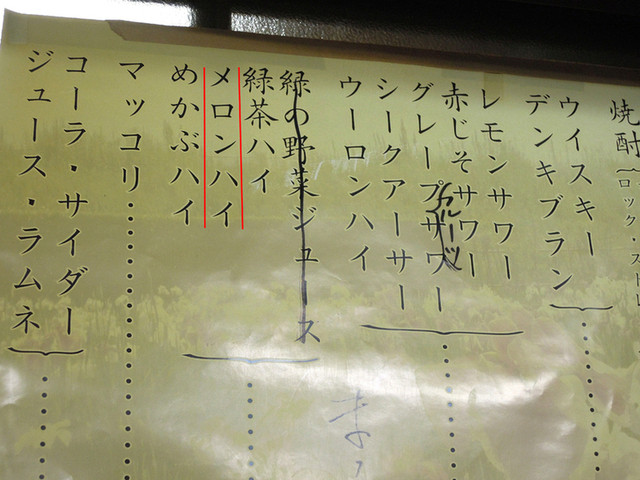 焼酎(ロック・スト
ウイスキー
デンキブラン
レモンサワー
赤じそサワー
グレープフルーツサワー
シークアーサー
ウーロンハイ
緑の野菜ジュース
緑茶ハイ
メロンハイ
めかぶハイ
マッコリ
コーラ・サイダー
ジュース・ラムネ